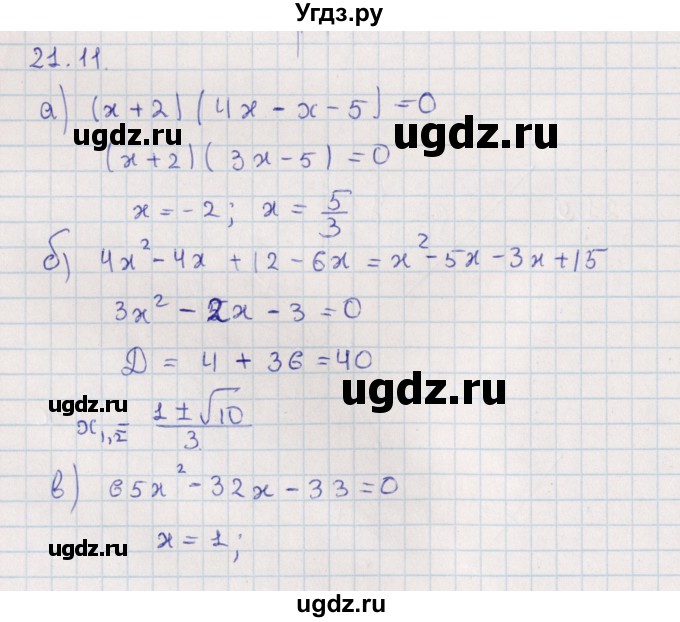 Угдз.ру
21.11.
а) (x+2)(4x-x-5)=0
ugdz.ru
ugdz.ru
(x+2)(3x-5)=0
x=-2; x=5/3
б) 4x²-4x+12-6x=x²-5x-3x+15
3x²-2x-3=0
D=4+36=40
ugdz.ru
ugdz.ru
x₁,₂=(1±√10)/3
в) 65x²-32x-33=0
x=1;
ugdz.ru
ugdz.ru
ugdz.ru